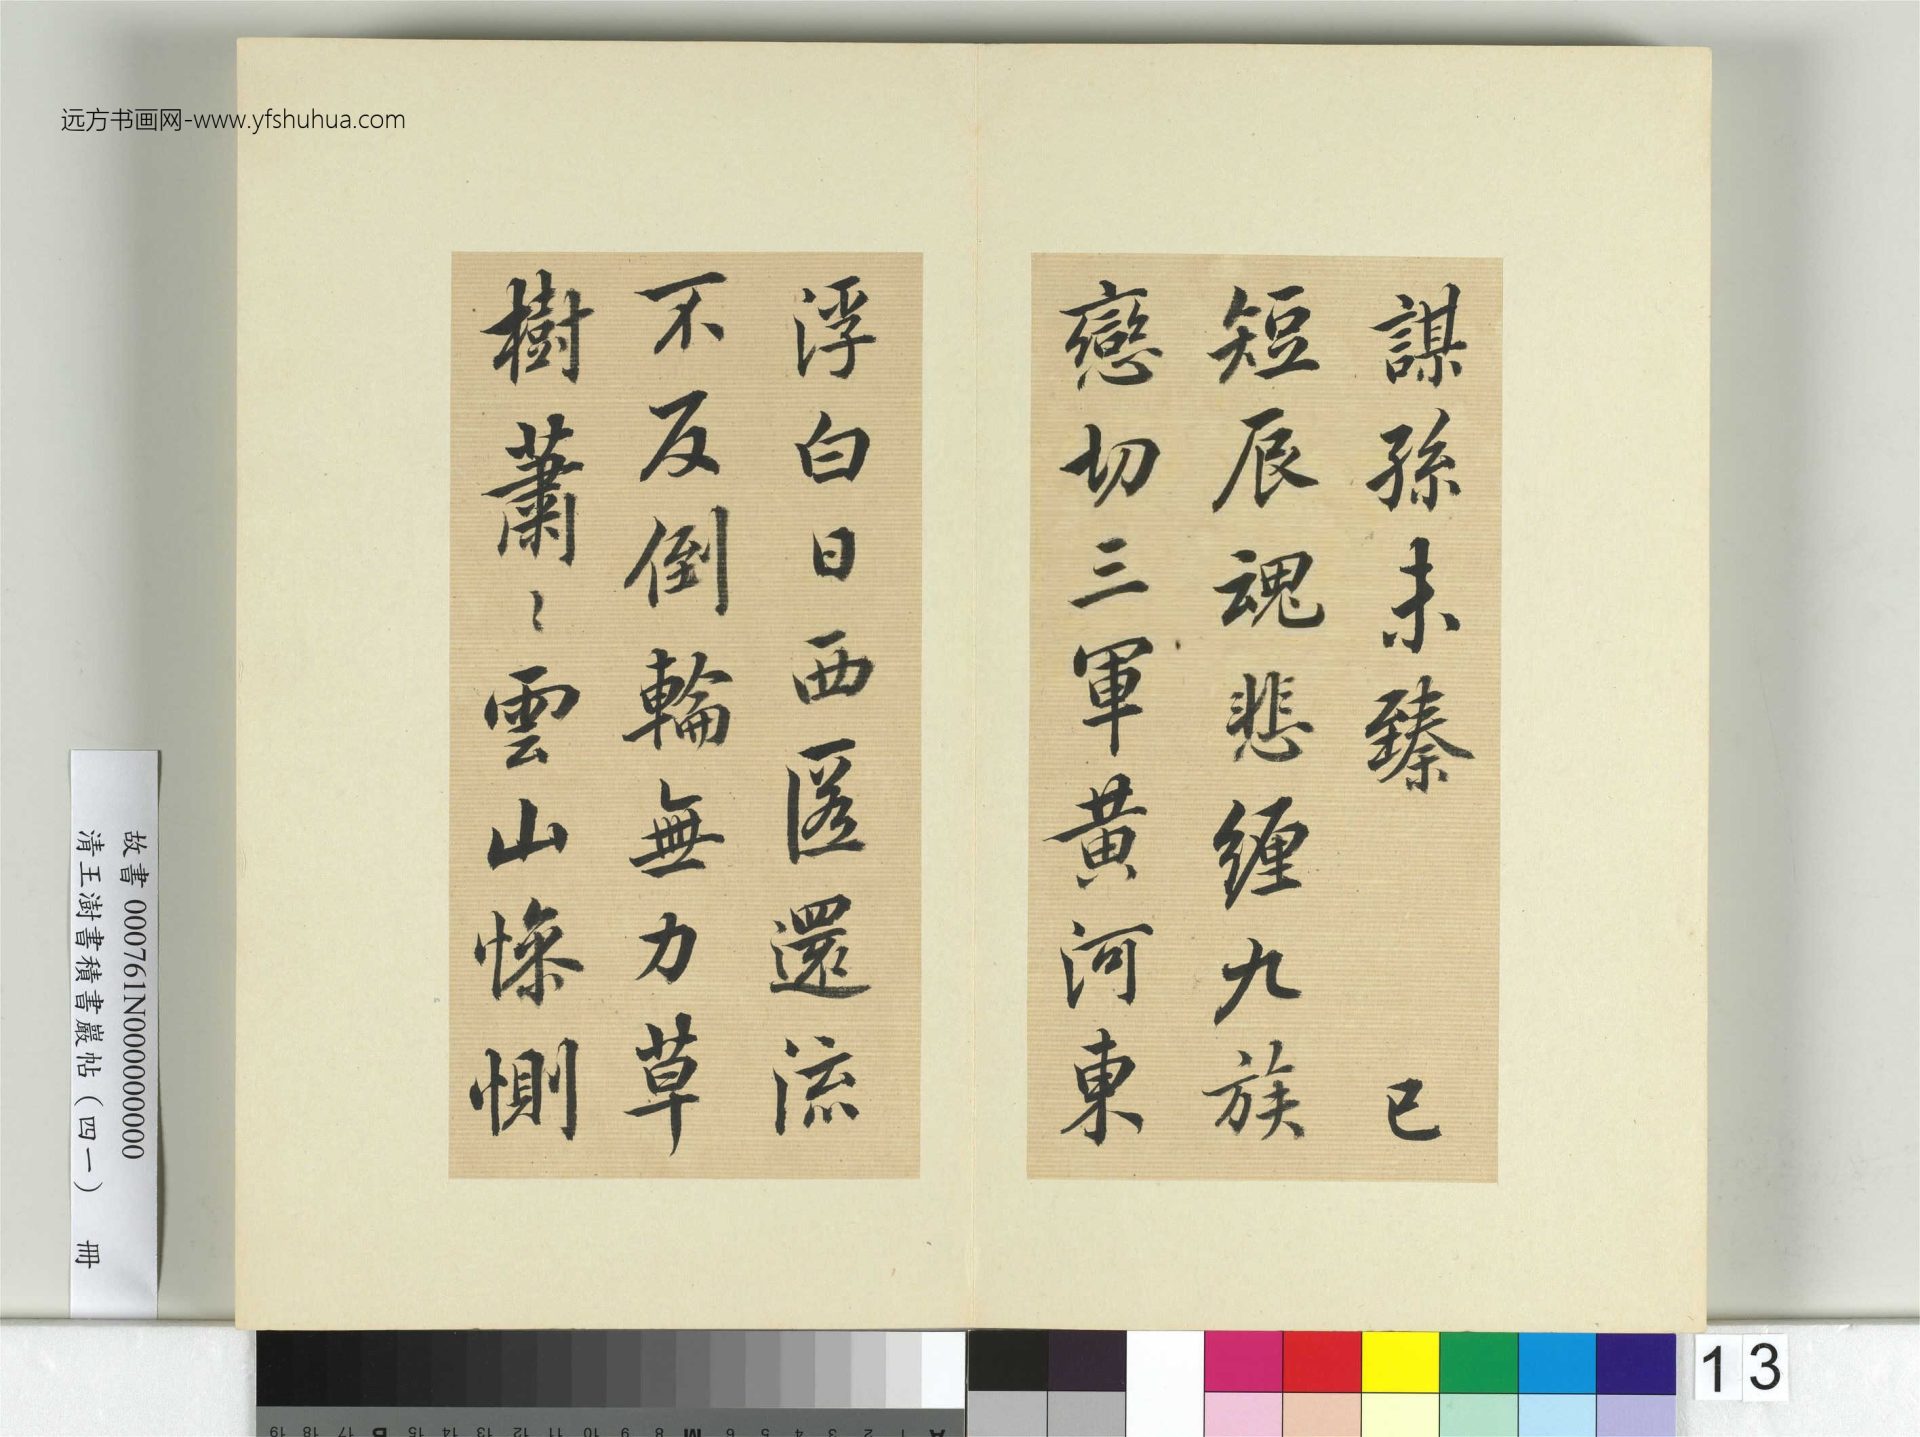 远方书画网-www.yfshuhua.com
謀孫未臻　已
短辰魂悲纏九族
戀切三軍黃河東
浮白日西匿還流
不反倒輪無力草
樹蕭〻雲山慘惻
故書 000761N000000000
清王澍書積書巖帖（四一） 冊
13